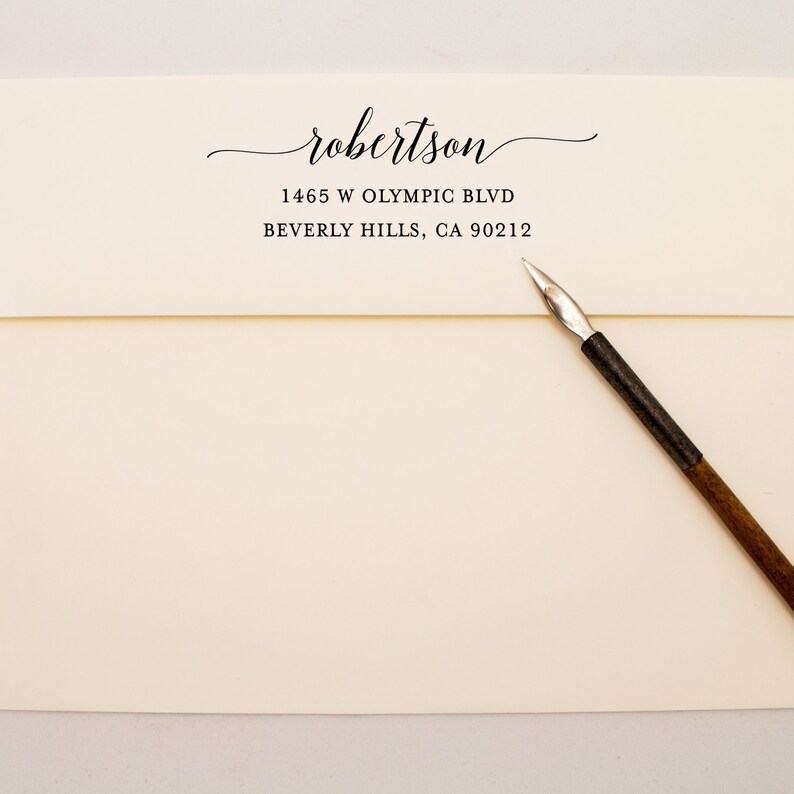 robertson
1465 W OLYMPIC BLVD
BEVERLY HILLS, CA 90212